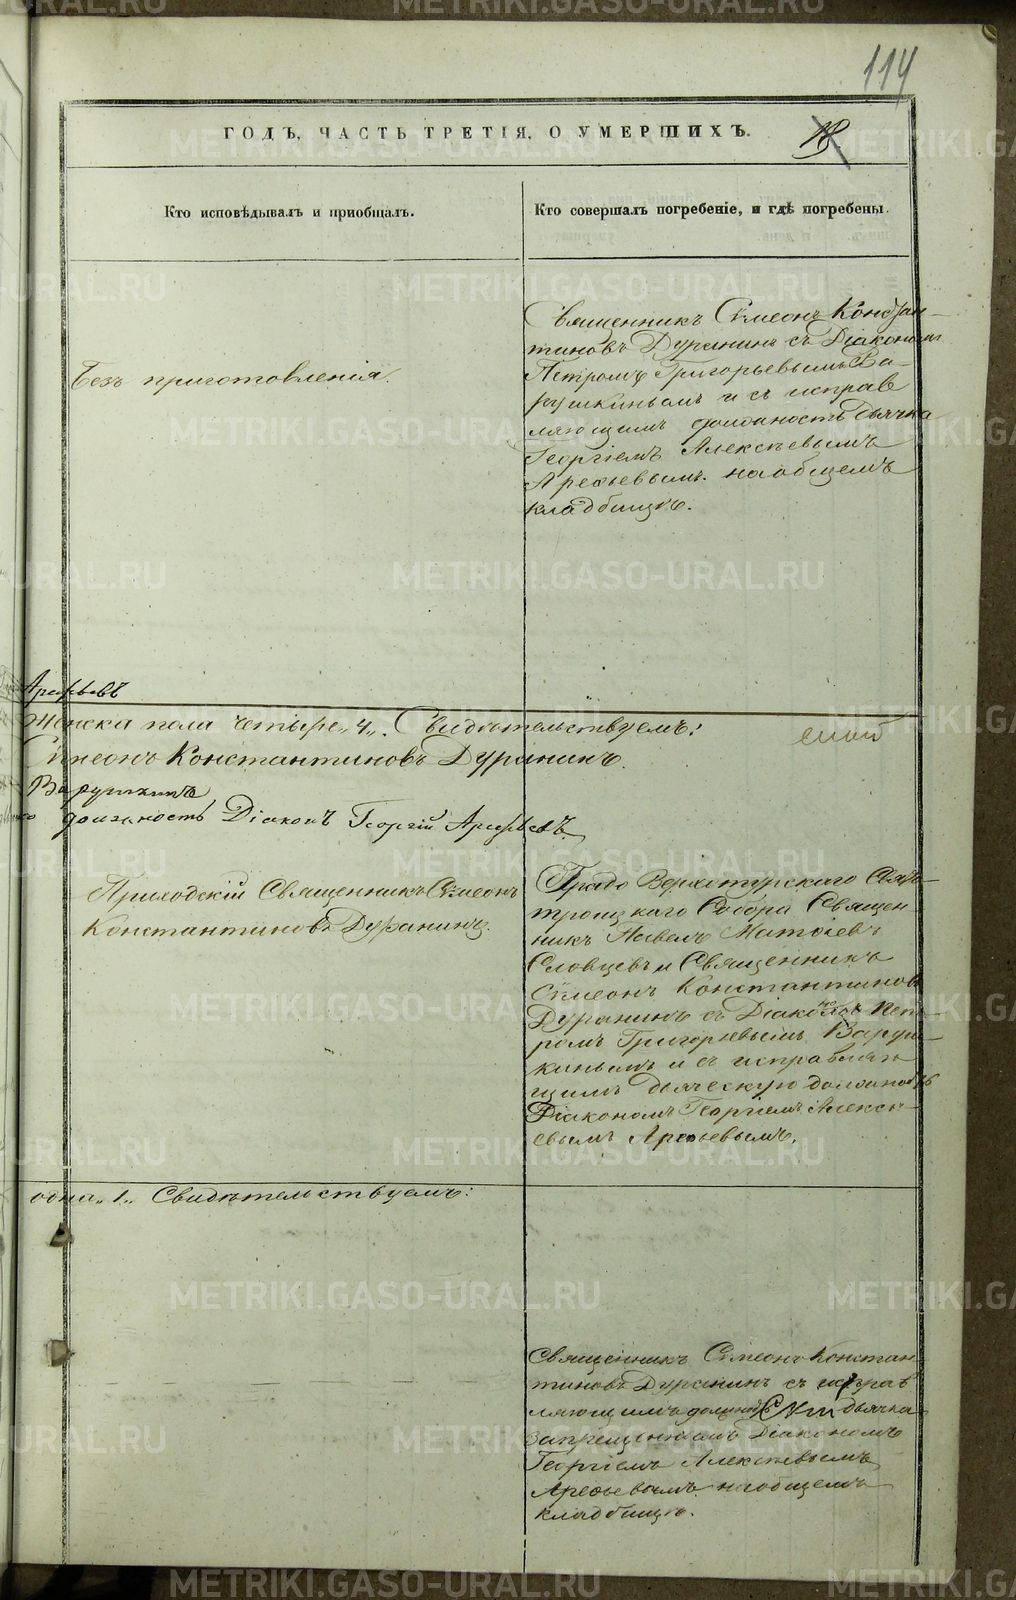 114
ГОДЪ, ЧАСТЬ ТРЕТІЯ, О УМЕРШИХЪ.
Кто исповѣдывалъ и пріобщалъ.
Кто совершалъ погребеніе, и гдѣ погребены.
Безъ приготовленія.
Священникъ Симеонъ Констан-
тиновъ Дуранинъ съ Діакономъ
Петромъ Григорьевымъ Ва-
рушкинымъ и съ исправ
ляющимъ должность дьячка
Георгіемъ Алексѣевымъ
Арефьевымъ на общемъ
кладбищѣ.
Арефьевъ
Женска пола четыре „4„. Свидѣтельствуемъ:
Симеонъ Константиновъ Дуранинъ.
Варушкинъ
должность Діаконъ Георгій Арефьевъ
Приходскій Священникъ Симеонъ
Константиновъ Дуранинъ.
Градо Верхотурскаго Свя-
троицкаго Собора Священ-
никъ Павелъ Матѳіевъ
Словцевъ и Священникъ
Симеонъ Константиновъ
Дуранинъ съ Діакономъ Пет-
ромъ Григорьевымъ Варуш-
кинымъ и съ исправляю
щимъ дьяческую должность
Діакономъ Георгіемъ Алексѣ-
евымъ Арефьевымъ.
одна „1„ Свидѣтельствуемъ:
Священникъ Симеонъ Констан-
тиновъ Дуранинъ съ исправ
ляющимъ должность дьячка
запрещеннымъ Діакономъ
Георгіемъ Алексѣевымъ
Арефьевымъ на общемъ
кладбищѣ.
METRIKI.GASO-URAL.RU